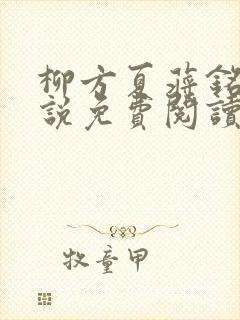 柳方夏蔣銘
說免費閱讀
牧童甲